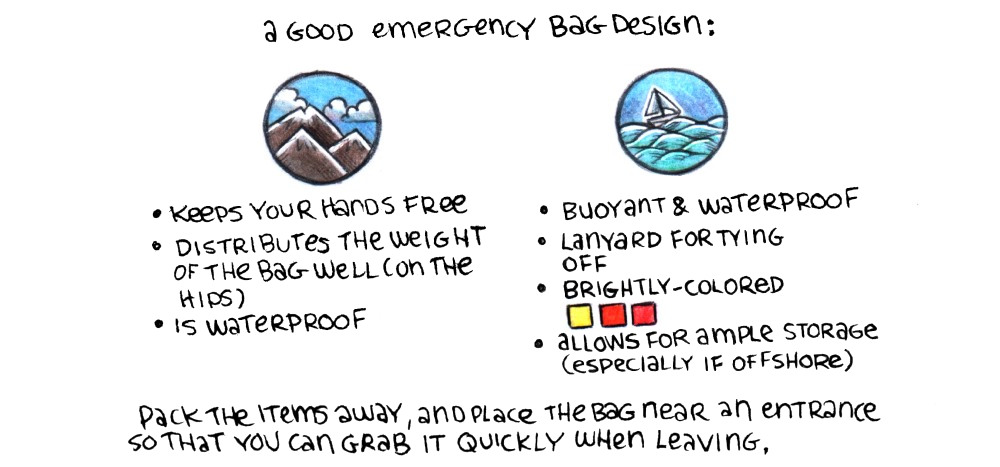 a GOOD emergency Bag Design:
• Keeps your hands free
• Distributes the weight
of the bag well (on the
hips)
• is waterproof
• Buoyant & waterproof
• Lanyard for tying
off
• Brightly-colored
• allows for ample storage
(especially if offshore)
Pack the items away, and place the bag near an entrance
so that you can grab it quickly when leaving.